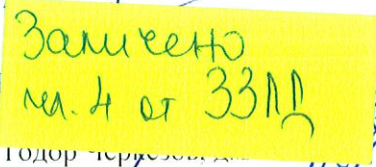 Заличено
чл. 4 от ЗЗЛД
Тодор Черкезов, д